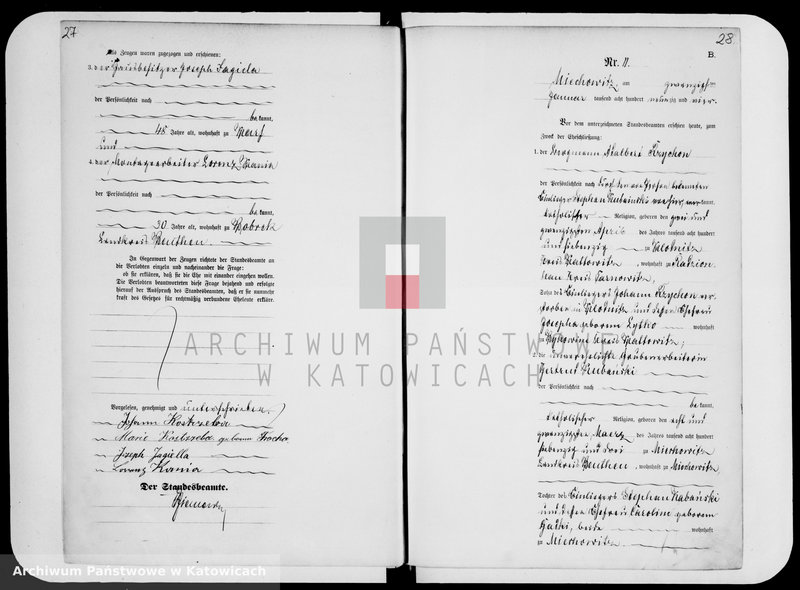 27
Als Zeugen waren zugezogen und erschienen:
3. der Hausbesitzer Joseph Jagiela
der Persönlichkeit nach
be kannt,
45 Jahre alt, wohnhaft zu Karf
und
4. der Montagearbeiter Lorenz Kania
der Persönlichkeit nach
be kannt,
30 Jahre alt, wohnhaft zu Bobrek
Landkreis Beuthen.
In Gegenwart der Zeugen richtete der Standesbeamte an
die Verlobten einzeln und nacheinander die Frage:
ob sie erklären, daß sie die Ehe mit einander eingehen wollen.
Die Verlobten beantworteten diese Frage bejahend und erfolgte
hierauf der Ausspruch des Standesbeamten, daß er sie nunmehr
kraft des Gesetzes für rechtmäßig verbundene Eheleute erkläre.
Vorgelesen, genehmigt und unterschrieben.
Johann Kostrzewa
Marie Kostrzewa geborene
Joseph Jagiella
Lorenz Kania
Der Standesbeamte.
28
B.
Nr. 11.
Miechowitz am zwanzigsten
Januar tausend acht hundert neunzig und vier.
Vor dem unterzeichneten Standesbeamten erschien heute, zum
Zweck der Eheschließung:
1. der Bergmann Adalbert Krychon
der Persönlichkeit nach durch den von Person bekannten
Einlieger Stephan Kubainski von hier, anerkannt,
katholischer Religion, geboren den zwei und
zwanzigsten April des Jahres tausend acht hundert
und siebenzig zu Klodnitz
Kreis Kattowitz, wohnhaft zu Radzion
kau Kreis Tarnowitz,
Sohn des Einliegers Johann Krychon ver
storben in Klodnitz und dessen Ehefrau
Josepha geborene Lytko wohnhaft
zu Bykowine Kreis Kattowitz;
2. die unverehelichte Grubenarbeiterin
Gertrud Kubański
der Persönlichkeit nach
be kannt,
katholischer Religion, geboren den acht und
zwanzigsten Maerz des Jahres tausend acht hundert
siebenzig und drei zu Miechowitz
Landkreis Beuthen, wohnhaft zu Miechowitz
Tochter des Einliegers Stephan Kubański
und dessen Ehefrau Caroline geborene
beide wohnhaft
zu Miechowitz.
ARCHIWUM PAŃSTWOWE
W KATOWICACH
Archiwum Państwowe w Katowicach